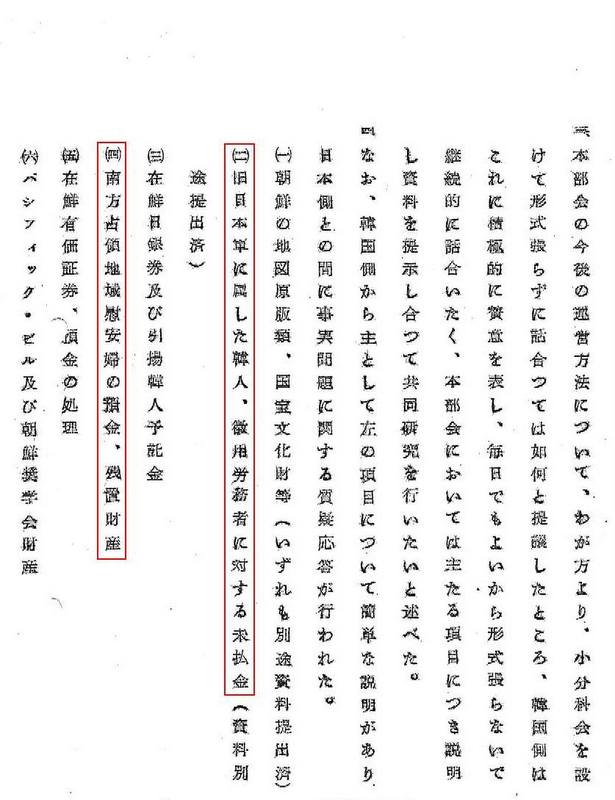 三、本部会の今後の運営方法について、わが方より、小分科会を設
けて形式張らずに話合つては如何と提議したところ、韓国側は
これに積極的に賛意を表し、毎日でもよいから形式張らないで
継続的に話合いたく、本部会においては主たる項目につき説明
し資料を提示し合つて共同研究を行いたいと述べた。
四、なお、韓国側から主として左の項目について簡単な説明があり
日本側との間に事実問題に関する質疑応答が行われた。
㈠朝鮮の地図原版類、国宝文化財等(いずれも別途資料提出済)
㈡旧日本軍に属した韓人、徴用労務者に対する未払金(資料別
途提出済)
㈢在鮮日銀券及び引揚韓人予託金
㈣南方占領地域慰安婦の預金、残置財産
㈤在鮮有価証券、預金の処理
㈥パシフィック・ビル及び朝鮮奨学会財産